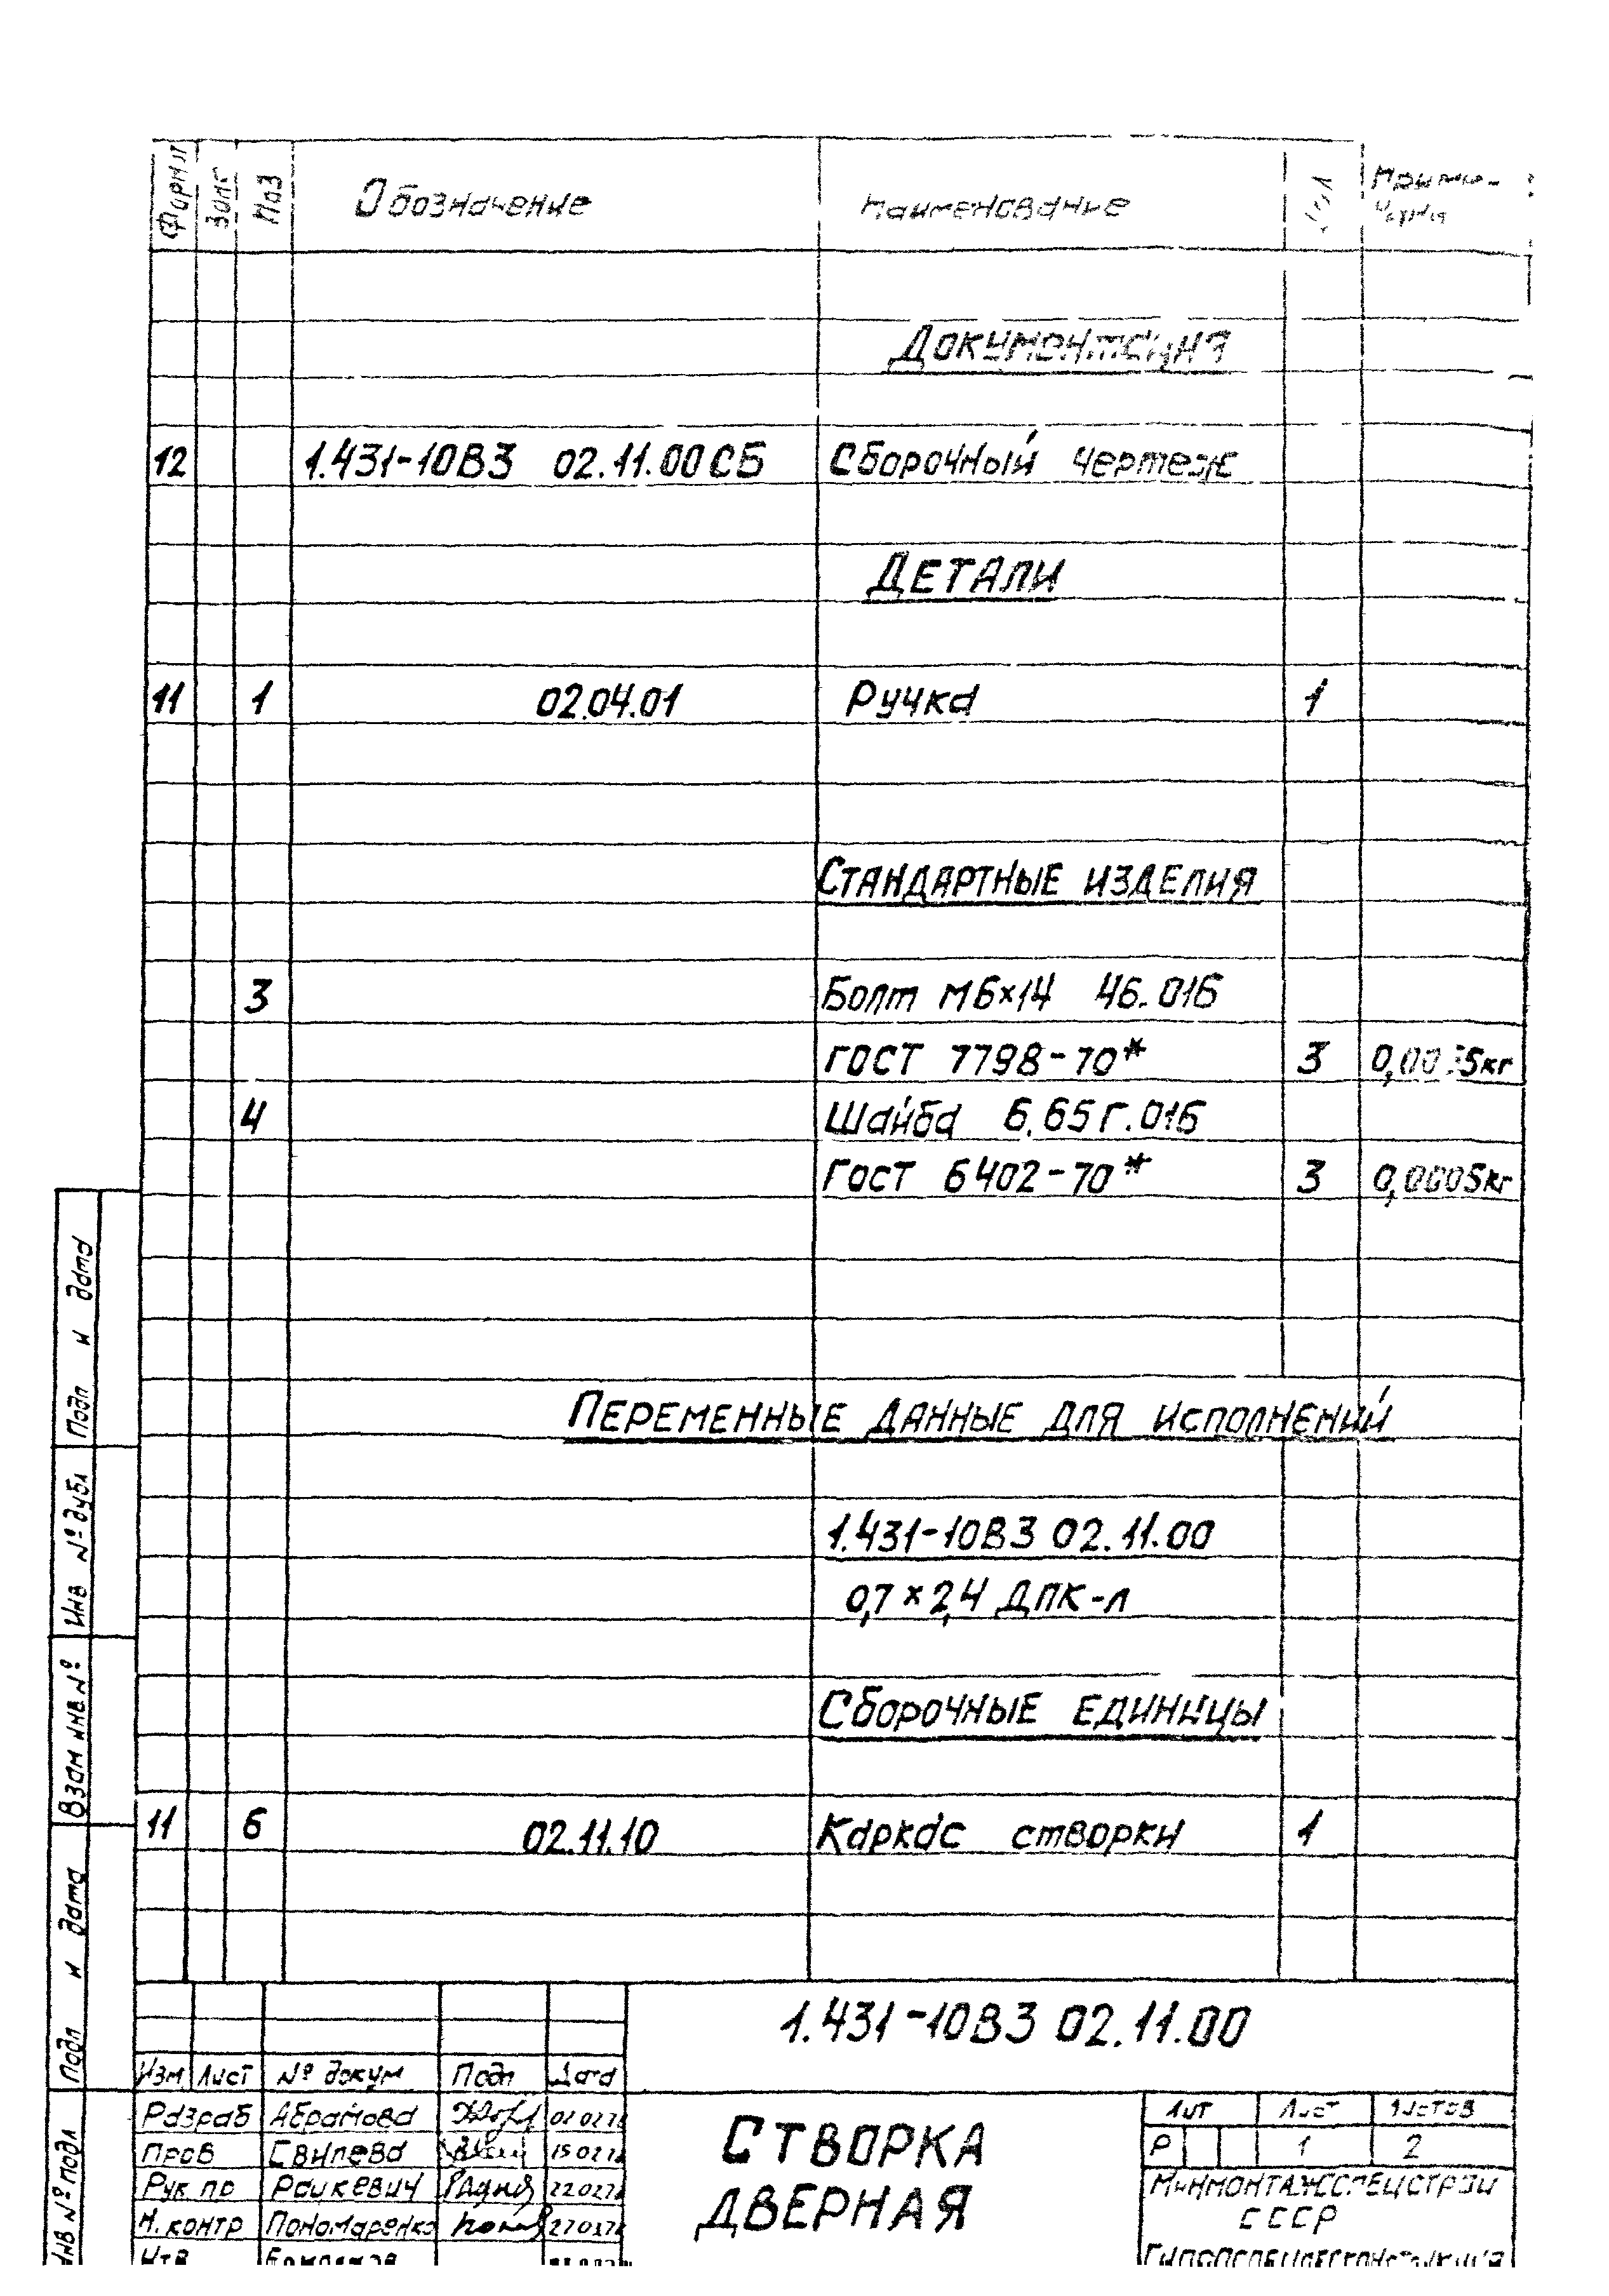 Формат Зона Поз Обозначение Наименование Кол Приме-
чания
Документация
12 1.431-10В3 02.11.00СБ Сборочный чертеж
ДЕТАЛИ
11 1 02.04.01 Ручка 1
СТАНДАРТНЫЕ ИЗДЕЛИЯ
3 Болт М6×14 46.016
ГОСТ 7798-70* 3
4 Шайба 6.65Г.016
ГОСТ 6402-70* 3 0,0005кг
ПЕРЕМЕННЫЕ ДАННЫЕ ДЛЯ ИСПОЛНЕНИЙ
1.431-10В3 02.11.00
0,7×2,4 ДПК-л
СБОРОЧНЫЕ ЕДИНИЦЫ
11 6 02.11.10 Каркас створки 1
Подп и дата
Инв № дубл
Взам инв №
Подп и дата
Инв № подл
1.431-10В3 02.11.00
Изм Лист № докум Подп Дата
Разраб Абрамова
Пров Свинева
Рук пр Рацкевич
Н. контр Пономаренко
Утв
СТВОРКА
ДВЕРНАЯ
Лит Лист Листов
Р 1 2
МИНМОНТАЖСПЕЦСТРОЙ
СССР